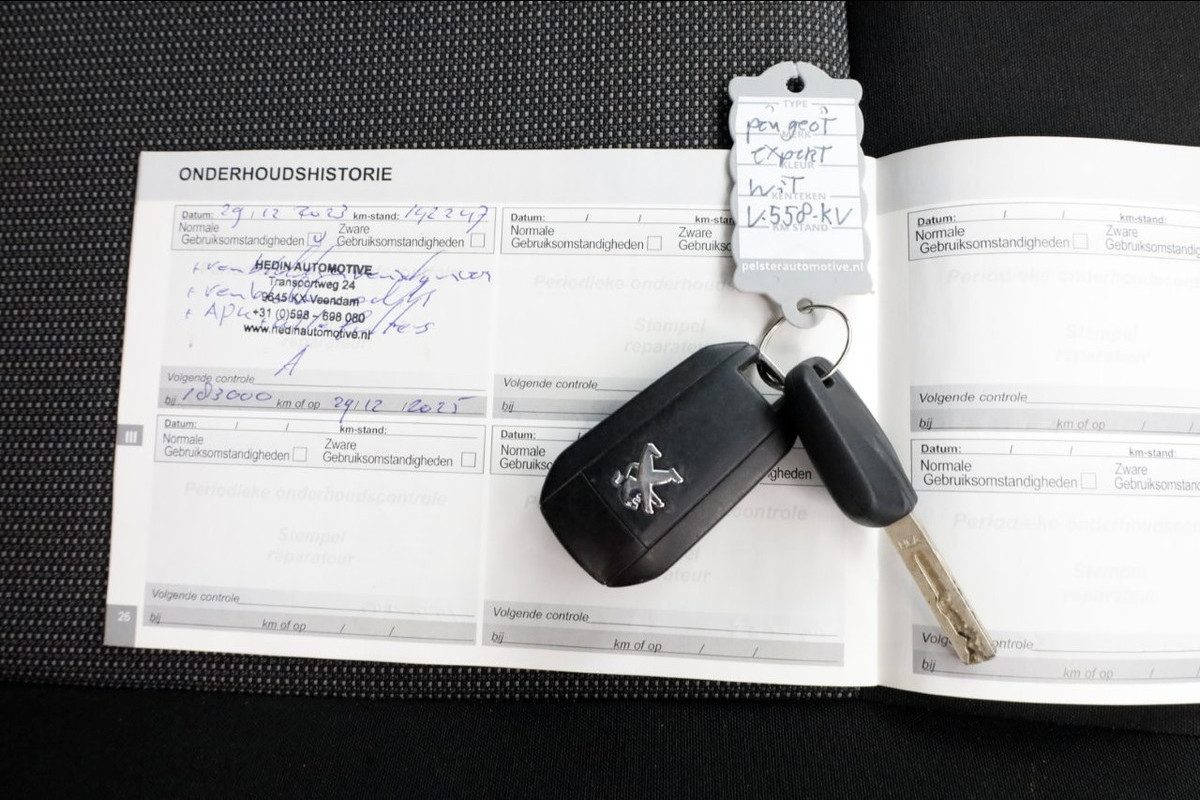 ONDERHOUDSHISTORIE
Datum: 29/12 2023 km-stand: 142247
Normale
Gebruiksomstandigheden
Zware
Gebruiksomstandigheden
HEDIN AUTOMOTIVE
Transportweg 24
9645 KX Veendam
+31 (0)598 - 698 080
www.hedinautomotive.nl
reparateur
Volgende controle
bij 183000 km of op 29/12 /2025
Datum: / / km-stand:
Normale
Gebruiksomstandigheden
Zware
Gebruiksomstandigheden
Periodieke onderhoudscontrole
Stempel
reparateur
Volgende controle
bij km of op / /
26
III
Datum: / / km-stan
Normale
Gebruiksomstandigheden
Zware
Gebruiks
Periodieke onderhouds
Stempel
reparateur
Volgende controle
bij
Datum:
Normale
Gebruikso
heden
controle
Volgende controle
bij km of op / /
TYPE
peugeot
MERK
expert
KLEUR
wit
KENTEKEN
V-558-KV
KM STAND
pelsterautomotive.nl
Datum: / / km-stand:
Normale
Gebruiksomstandigheden
Zware
Gebruiksomstandig
Periodieke onderhoudscont
Stempel
reparateur
Volgende controle
bij km of op / /
Datum: / / km-stand:
Normale
Gebruiksomstandigheden
Zware
Gebruiksomstand
Periodieke onderhoudscon
Stempel
reparateur
Volg controle
bij km of op / /